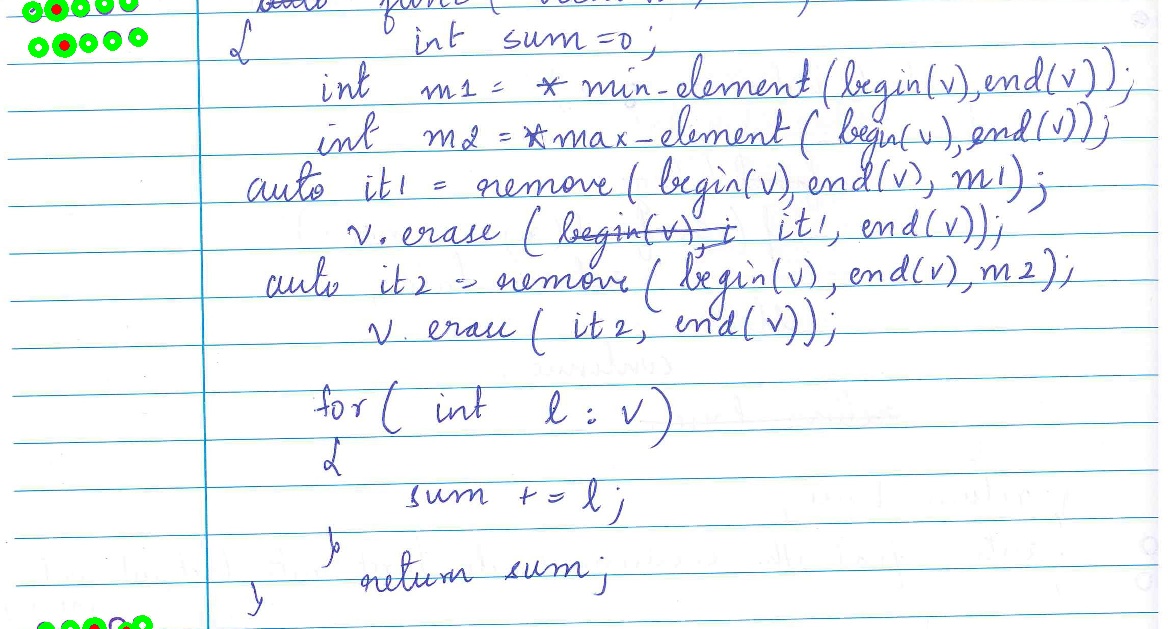 { int sum =0;
int m1 = * min-element (begin(v), end(v));
int m2 = *max-element ( begin(v), end(v));
auto it1 = remove ( begin(v), end(v), m1);
v. erase ( begin(v) + it1, end(v));
auto it2 = remove ( begin(v), end(v), m2);
v. erase ( it2, end(v));
for ( int l : v)
{
sum += l;
}
return sum;
}